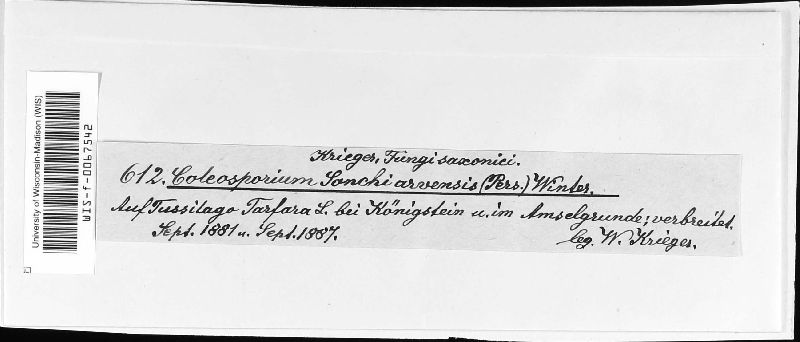 Krieger, Fungi saxonici.
612. Coleosporium Sonchi arvensis (Pers.) Winter.
Auf Tussilago Farfara L. bei Königstein u. im Amselgrunde; verbreitet.
Sept. 1881 u. Sept. 1887.
leg. W. Krieger.
University of Wisconsin-Madison (WIS)
WIS-f-0067542